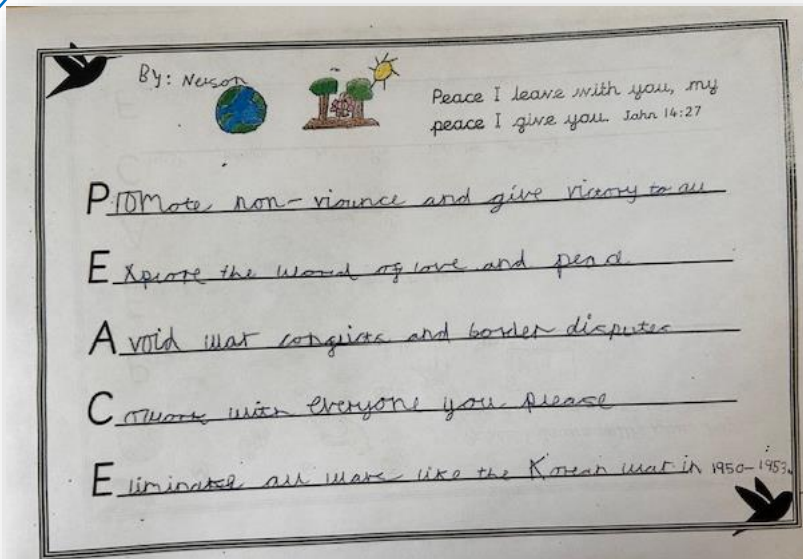 By: Nelson
Peace I leave with you, my
peace I give you. John 14:27
Promote non-violence and give victory to all
Explore the world of love and peac
Avoid war conflicts and border disputes
Cowork with everyone you please
Eliminate all wars like the Korean war in 1950-1953.